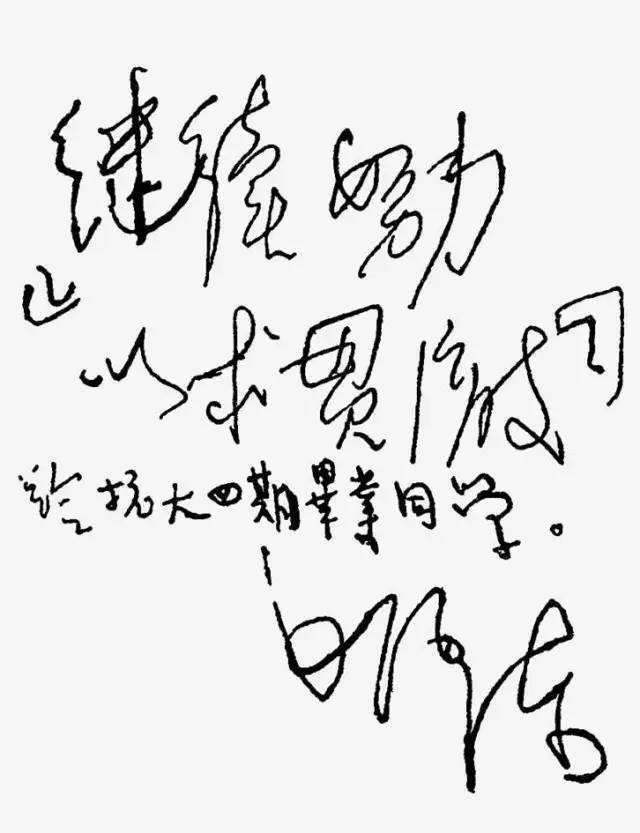 继续努力
“以求贯澈”
给抗大四期畢業同学。
毛泽东